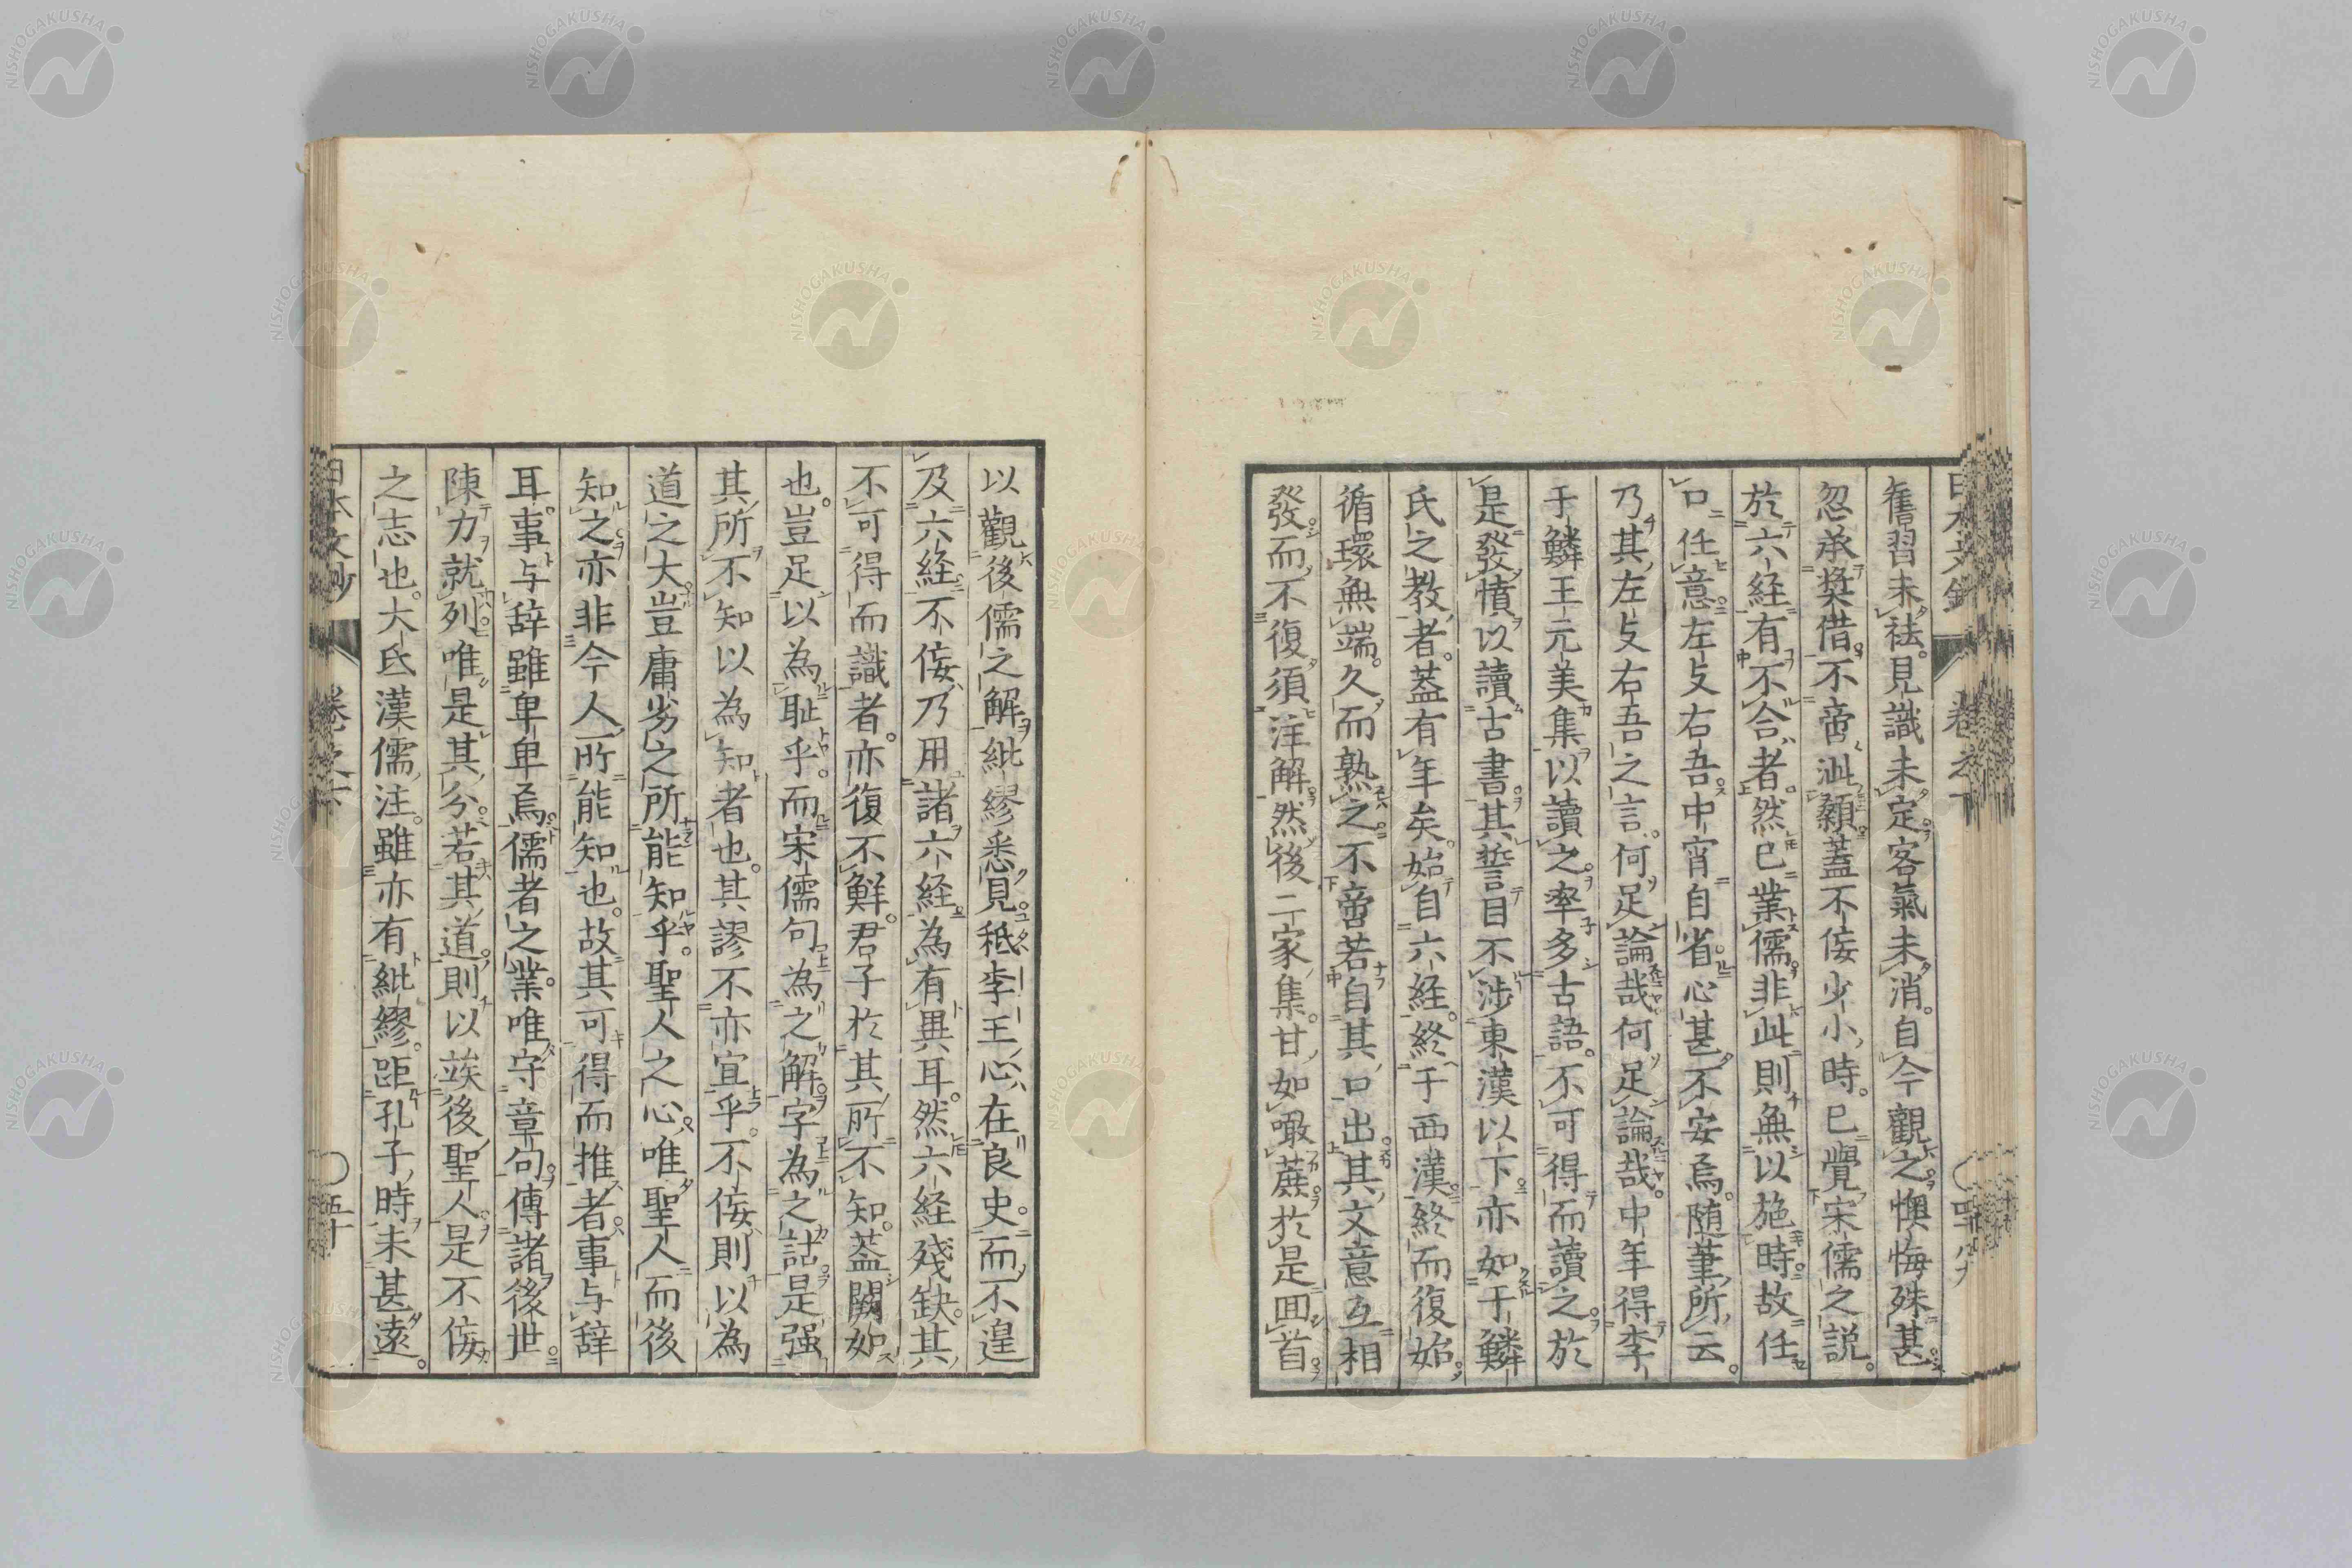 舊習未祛。見識未定。客氣未消。自今觀之。懊悔殊甚。
忽承奬借。不啻泚顙。蓋不佞少小時。已覺宋儒之説。
於六経有不合者。然已業儒。非此則無以施時。故任
口任意。左支右吾。中宵自省。心甚不安焉。随筆所云。
乃其左支右吾之言。何足論哉何足論哉。中年得李
于鱗王元美集以讀之。率多古語。不可得而讀之。於
是發憤以讀古書。其誓目不渉東漢以下。亦如于鱗
氏之教者。蓋有年矣。始自六経。終于西漢。終而復始。
循環無端。久而熟之。不啻若自其口出。其文意互相
發。而不復須注解。然後二家集。甘如噉蔗。於是囬首
以觀後儒之解。紕繆悉見。秪李王心在良史。而不遑
及六経。不佞乃用諸六経為有異耳。然六経殘缺。其
不可得而識者。亦復不鮮。君子於其所不知。蓋闕如
也。豈足以為耻乎。而宋儒句為之解。字為之詁。是强
其所不知以為知者也。其謬不亦宜乎。不佞則以為
道之大。豈庸劣之所能知乎。聖人之心。唯聖人而後
知之。亦非今人所能知也。故其可得而推者。事与辞
耳。事与辞雖卑卑焉。儒者之業。唯守章句。傳諸後世。
陳力就列。唯是其分。若其道。則以竢後聖人。是不佞
之志也。大氐漢儒注。雖亦有紕繆。距孔子時未甚遠。
日本文鈔 卷之下 五十